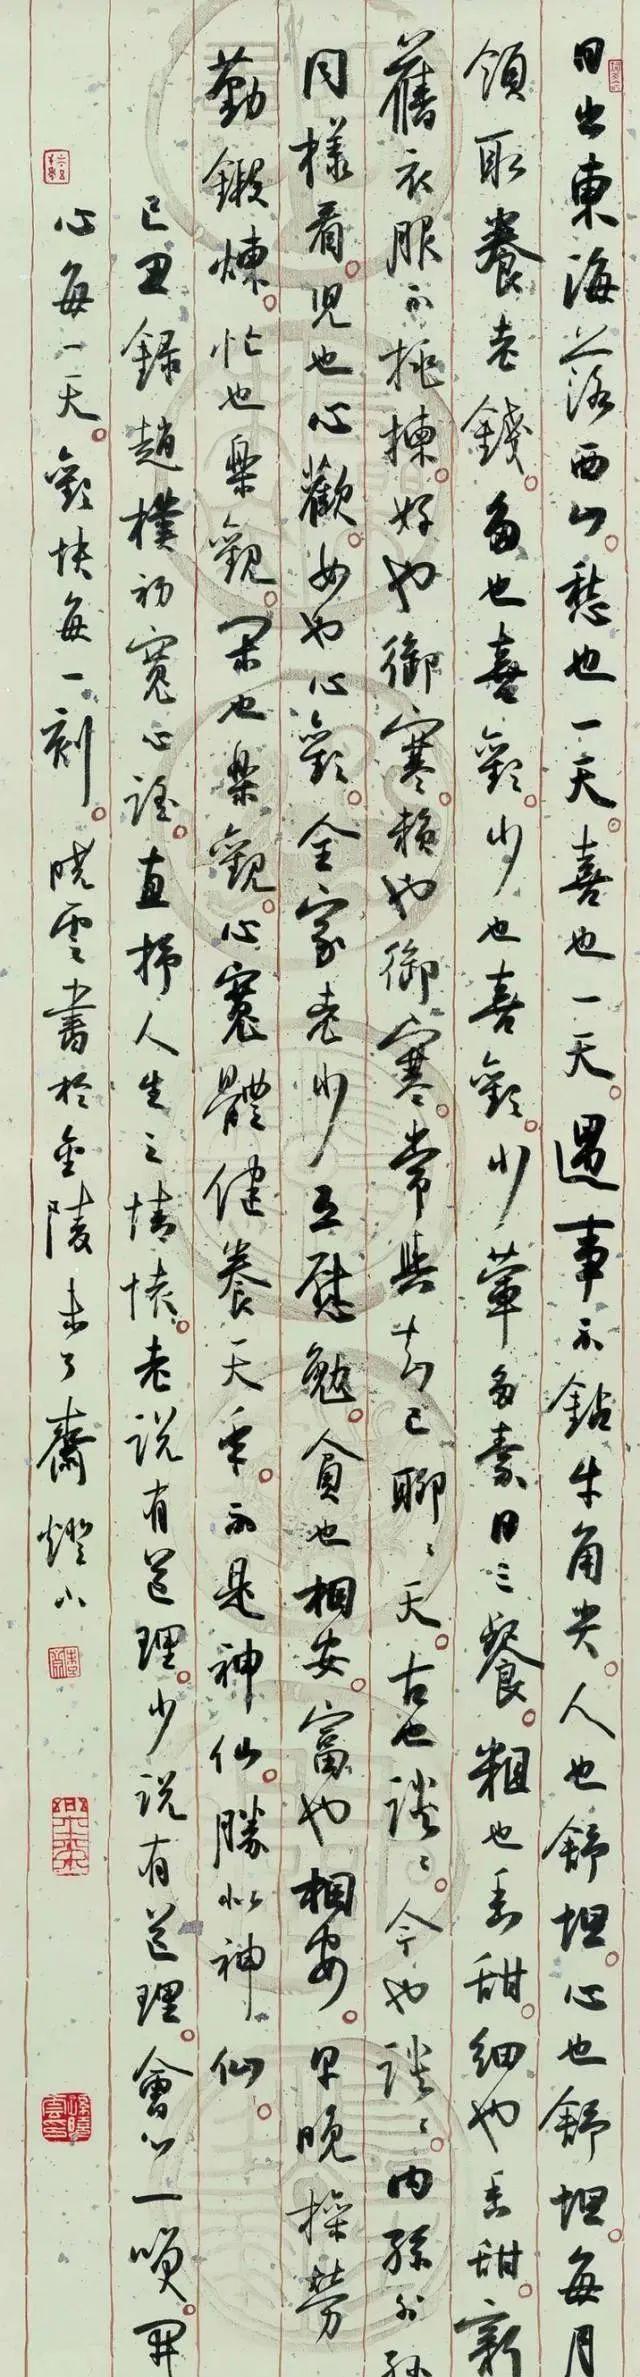 日出東海落西山。愁也一天。喜也一天。遇事不鉆牛角尖。人也舒坦。心也舒坦。每月
領取養老錢。多也喜歡。少也喜歡。少葷多素日三餐。粗也香甜。細也香甜。新
舊衣服不挑揀。好也御寒。賴也御寒。常與知己聊聊天。古也談談。今也談談。內孫外孫
同樣看。児也心歡。女也心歡。全家老少互慰勉。貧也相安。富也相安。早晚操勞
勤鍛煉。忙也樂觀。閑也樂觀。心寬體健養天年。不是神仙。勝似神仙。
己丑錄趙樸初寬心謠。直抒人生之情懷。老説有道理。少説有道理。會心一笑。開
心每一天。歡快每一刻。曉雲書於金陵未了齋燈下